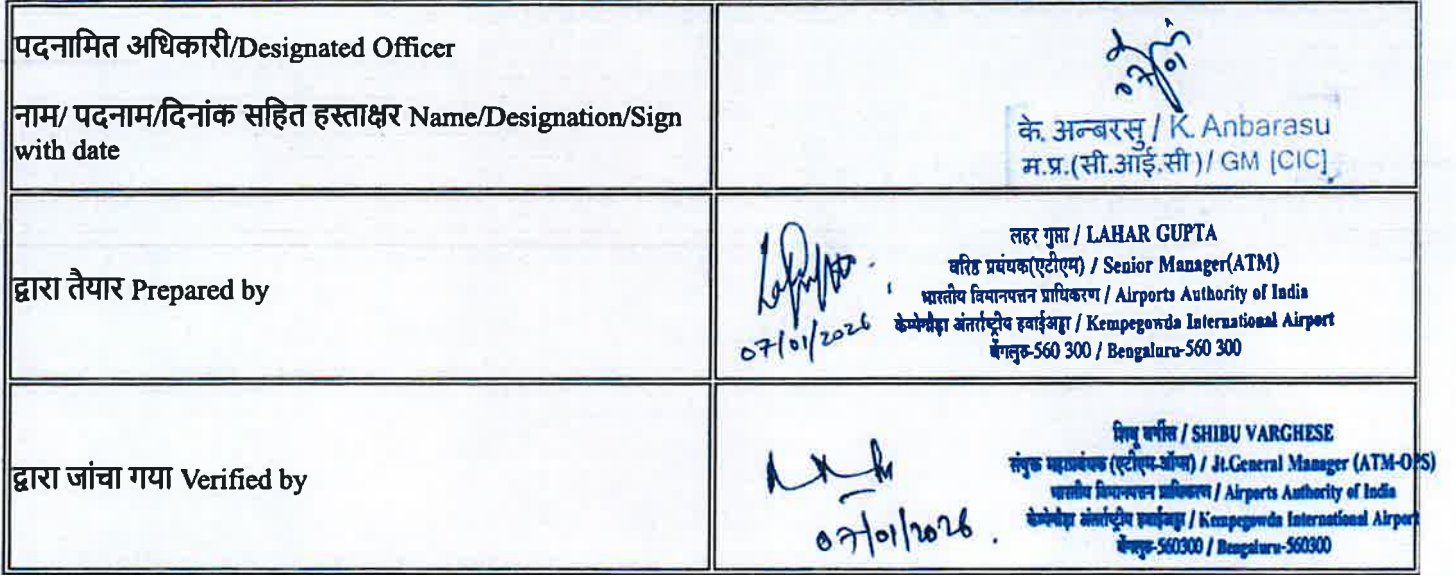 पदनामित अधिकारी/Designated Officer
नाम/ पदनाम/दिनांक सहित हस्ताक्षर Name/Designation/Sign
with date
07/01
के. अन्बरसु / K. Anbarasu
म.प्र.(सी.आई.सी)/ GM [CIC]
द्वारा तैयार Prepared by
07/01/2026
लहर गुप्ता / LAHAR GUPTA
वरिष्ठ प्रबंधक(एटीएम) / Senior Manager(ATM)
भारतीय विमानपत्तन प्राधिकरण / Airports Authority of India
केम्पेगौड़ा अंतर्राष्ट्रीय हवाईअड्डा / Kempegowda International Airport
बेंगलुरु-560 300 / Bengaluru-560 300
द्वारा जांचा गया Verified by
07/01/2026
शिबु वर्गीस / SHIBU VARGHESE
संयुक्त महाप्रबंधक (एटीएम-ऑप्स) / Jt.General Manager (ATM-OPS)
भारतीय विमानपत्तन प्राधिकरण / Airports Authority of India
केम्पेगौड़ा अंतर्राष्ट्रीय हवाईअड्डा / Kempegowda International Airport
बेंगलुरु-560300 / Bengaluru-560300